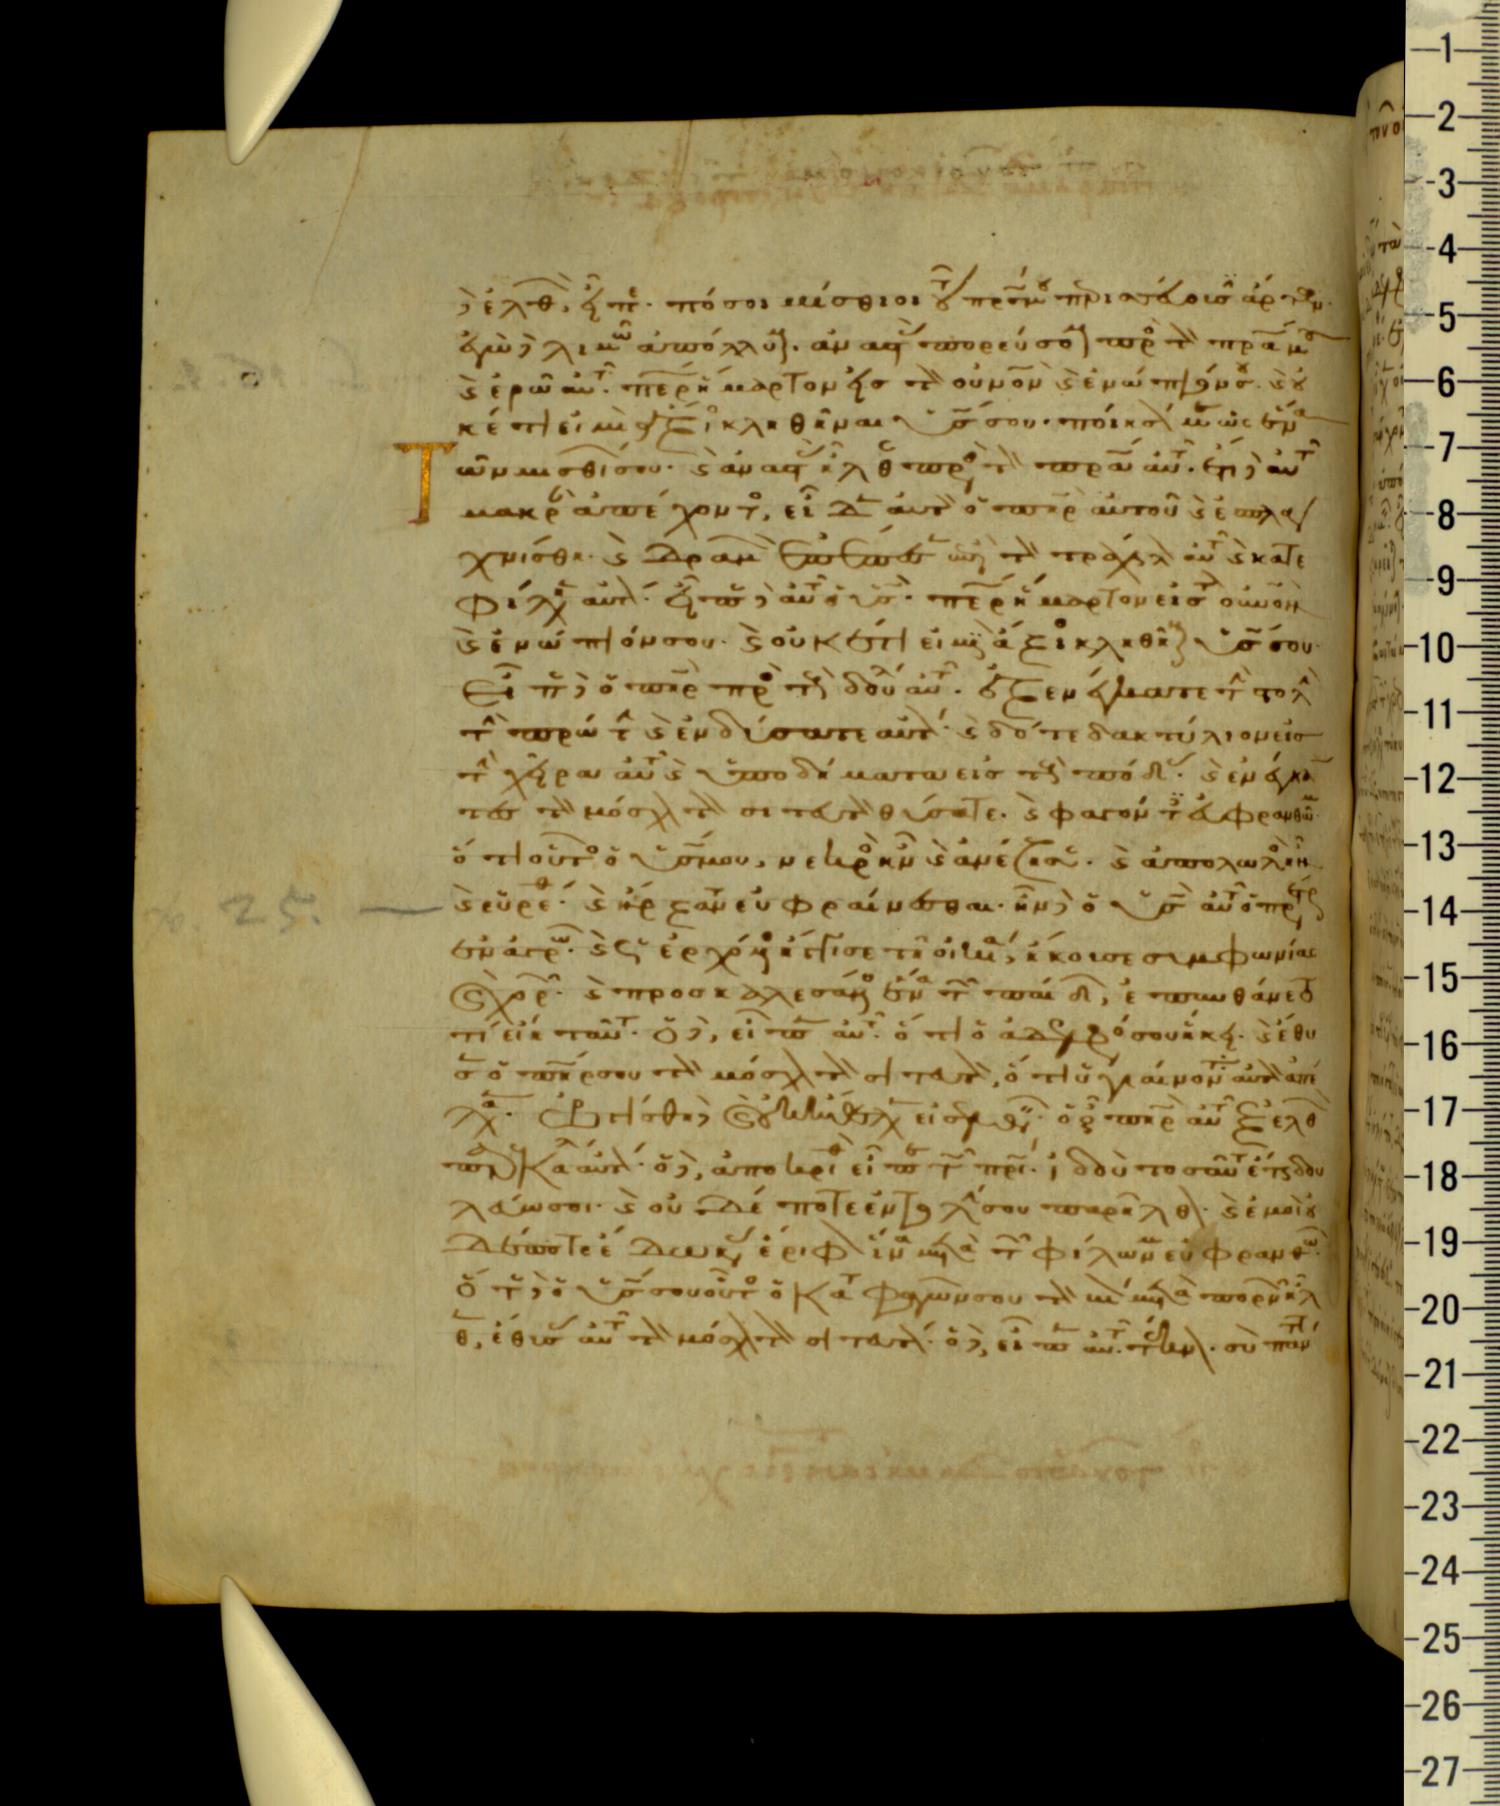 ἐλθ, εἶπε. πόσοι μίσθιοι τοῦ πρς μου περισσεύουσιν ἄρτων.
ἐγὼ δὲ λιμῷ ἀπόλλυμαι. ἀναστὰς πορεύσομαι πρὸς τὸν πρα μου
καὶ ἐρῶ αὐτῷ. περ ἥμαρτον εἰς τὸν οὐνον καὶ ἐνώπιόν σου. καὶ οὐ
κέτι εἰμὶ ἄξιος κληθῆναι υς σου. ποίησόν με ὡς ἕνα
τῶν μισθίων σου. καὶ ἀναστὰς ἦλθε πρὸς τὸν πρα αὐτοῦ. ἔτι δὲ αὐτοῦ
μακρὰν ἀπέχοντος, εἶδεν αὐτὸν ὁ πηρ αὐτοῦ καὶ ἐσπλα
χνίσθη. καὶ δραμὼν ἐπέπεσεν ἐπὶ τὸν τράχηλον αὐτοῦ καὶ κατε
φίλησεν αὐτόν. εἶπε δὲ αὐτῷ ὁ υς. περ ἥμαρτον εἰς τὸν οὐνον
καὶ ἐνώπιόν σου. καὶ οὐκέτι εἰμὶ ἄξιος κληθῆναι υς σου.
Εἶπε δὲ ὁ πηρ πρὸς τοὺς δούλους αὐτοῦ. ἐξενέγκατε τὴν στολὴν
τὴν πρώτην καὶ ἐνδύσατε αὐτόν. καὶ δότε δακτύλιον εἰς
τὴν χεῖρα αὐτοῦ καὶ ὑποδήματα εἰς τοὺς πόδας. καὶ ἐνέγκαν
τες τὸν μόσχον τὸν σιτευτὸν θύσατε. καὶ φαγόντες εὐφρανθῶμεν.
ὅτι οὗτος ὁ υς μου, νεκρὸς ἦν καὶ ἀνέζησε. καὶ ἀπολωλὼς ἦν
καὶ εὑρέθη. καὶ ἤρξαντο εὐφραίνεσθαι. ἦν δὲ ὁ υς αὐτοῦ ὁ πρεσβύτερος
ἐν ἀγρῷ. καὶ ὡς ἐρχόμενος ἤγγισε τῇ οἰκίᾳ, ἤκουσε συμφωνίας
καὶ χορῶν. καὶ προσκαλεσάμενος ἕνα τῶν παίδων, ἐπυνθάνετο
τί εἴη ταῦτα. ὁ δὲ, εἶπεν αὐτῷ. ὅτι ὁ ἀδελφός σου ἥκει. καὶ ἔθυ
σεν ὁ πηρ σου τὸν μόσχον τὸν σιτευτὸν, ὅτι ὑγιαίνοντα αὐτὸν ἀπέ
λαβεν. Ὠργίσθη δὲ καὶ οὐκ ἤθελεν εἰσελθεῖν. ὁ οὖν πηρ αὐτοῦ ἐξελθὼν
παρεκάλει αὐτόν. ὁ δὲ, ἀποκριθεὶς εἶπε τῷ πρι. ἰδοὺ τοσαῦτα ἔτη δου
λεύω σοι. καὶ οὐδέποτε ἐντολήν σου παρῆλθον. καὶ ἐμοὶ οὐ
δέποτε ἔδωκας ἔριφον ἵνα μετὰ τῶν φίλων μου εὐφρανθῶ.
ὅτε δὲ ὁ υς σου οὗτος ὁ καταφαγών σου τὸν βίον μετὰ πορνῶν ἦλ
θεν, ἔθυσας αὐτῷ τὸν μόσχον τὸν σιτευτόν. ὁ δὲ, εἶπεν αὐτῷ. τέκνον. σὺ πάν
25.